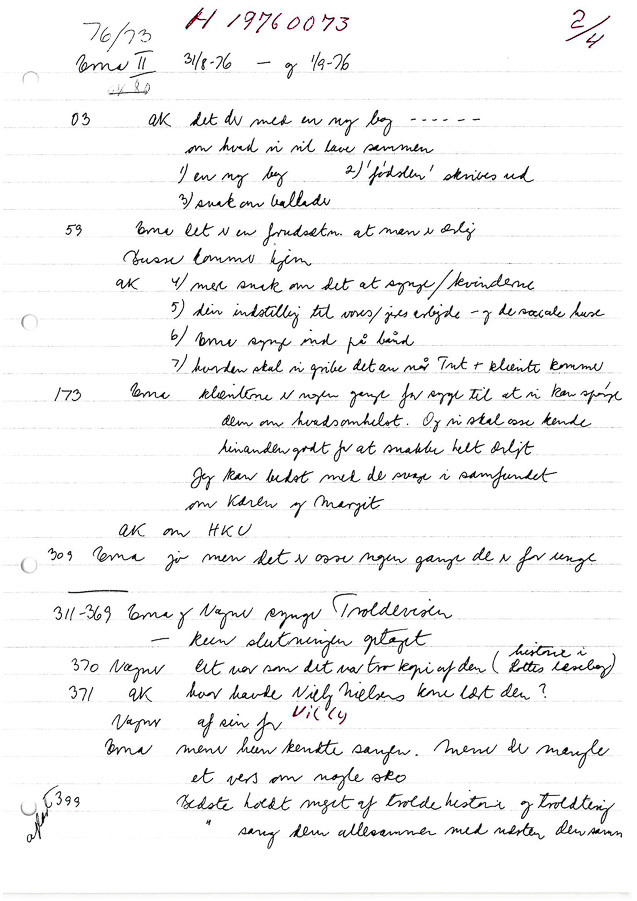 76/73 H 19760073 2/4
Erna II 31/8-76 – og 1/9-76
03 AK det der med en ny bog ------
om hvad vi vil lave sammen
1) en ny bog 2) 'fødslen' skrives ud
3) snak om ballader
59 Erna det er en forudsætn. at man er ærlig
Busser kommer hjem
AK 4) mer snak om det at synge/kvinderne
5) din indstilling til vores/jeres arbejde – og de sociale huse
6) Erna synge ind på bånd
7) hvordan skal vi gribe det an når Tut + klienter kommer
173 Erna klienterne er nogen gange for syge til at vi kan spørge
dem om hvadsomhelst. Og vi skal osse kende
hinanden godt for at snakke helt ærligt
Jeg kan bedst med de svage i samfundet
om Karen og Margit
AK om HKU
309 Erna jo men det er osse nogen gange de er for unge
311-369 Erna og Vagner synger Troldevisen
– kun slutningen optaget
370 Vagner det var som det var tro kopi af den (historie i Lottes læsebog)
371 AK hvor havde Villy Nielsens kone lært den?
Villy
Vagner af sin far
Erna mener hun kendte sangen. Mener der mangler
et vers om nogle sko
399 Bedste holdt meget af troldehistorier og troldting
" sang dem allesammen med næsten den samme